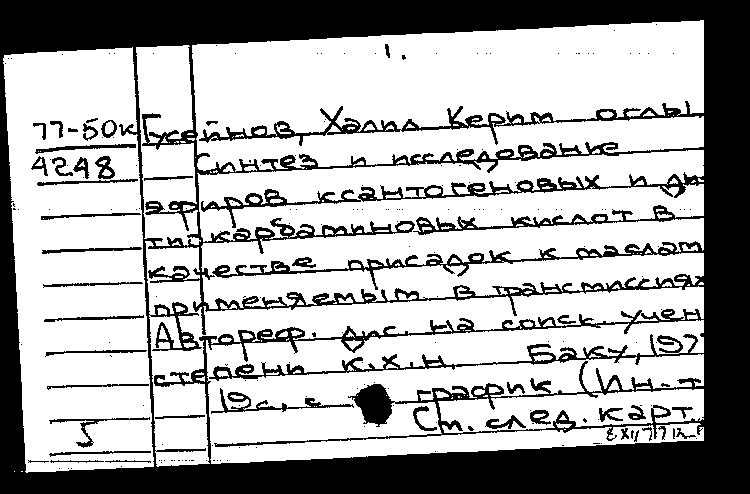 1.
77-50к Гусейнов, Халил Керим оглы
4248 Синтез и исследование
эфиров ксантогеновых и ди-
тиокарбаминовых кислот в
качестве присадок к маслам
применяемым в трансмиссиях
Автореф. дис. на соиск. учен
степени к.х.н. Баку, 197
19с, с график. (Ин-т
5 См. след. карт.